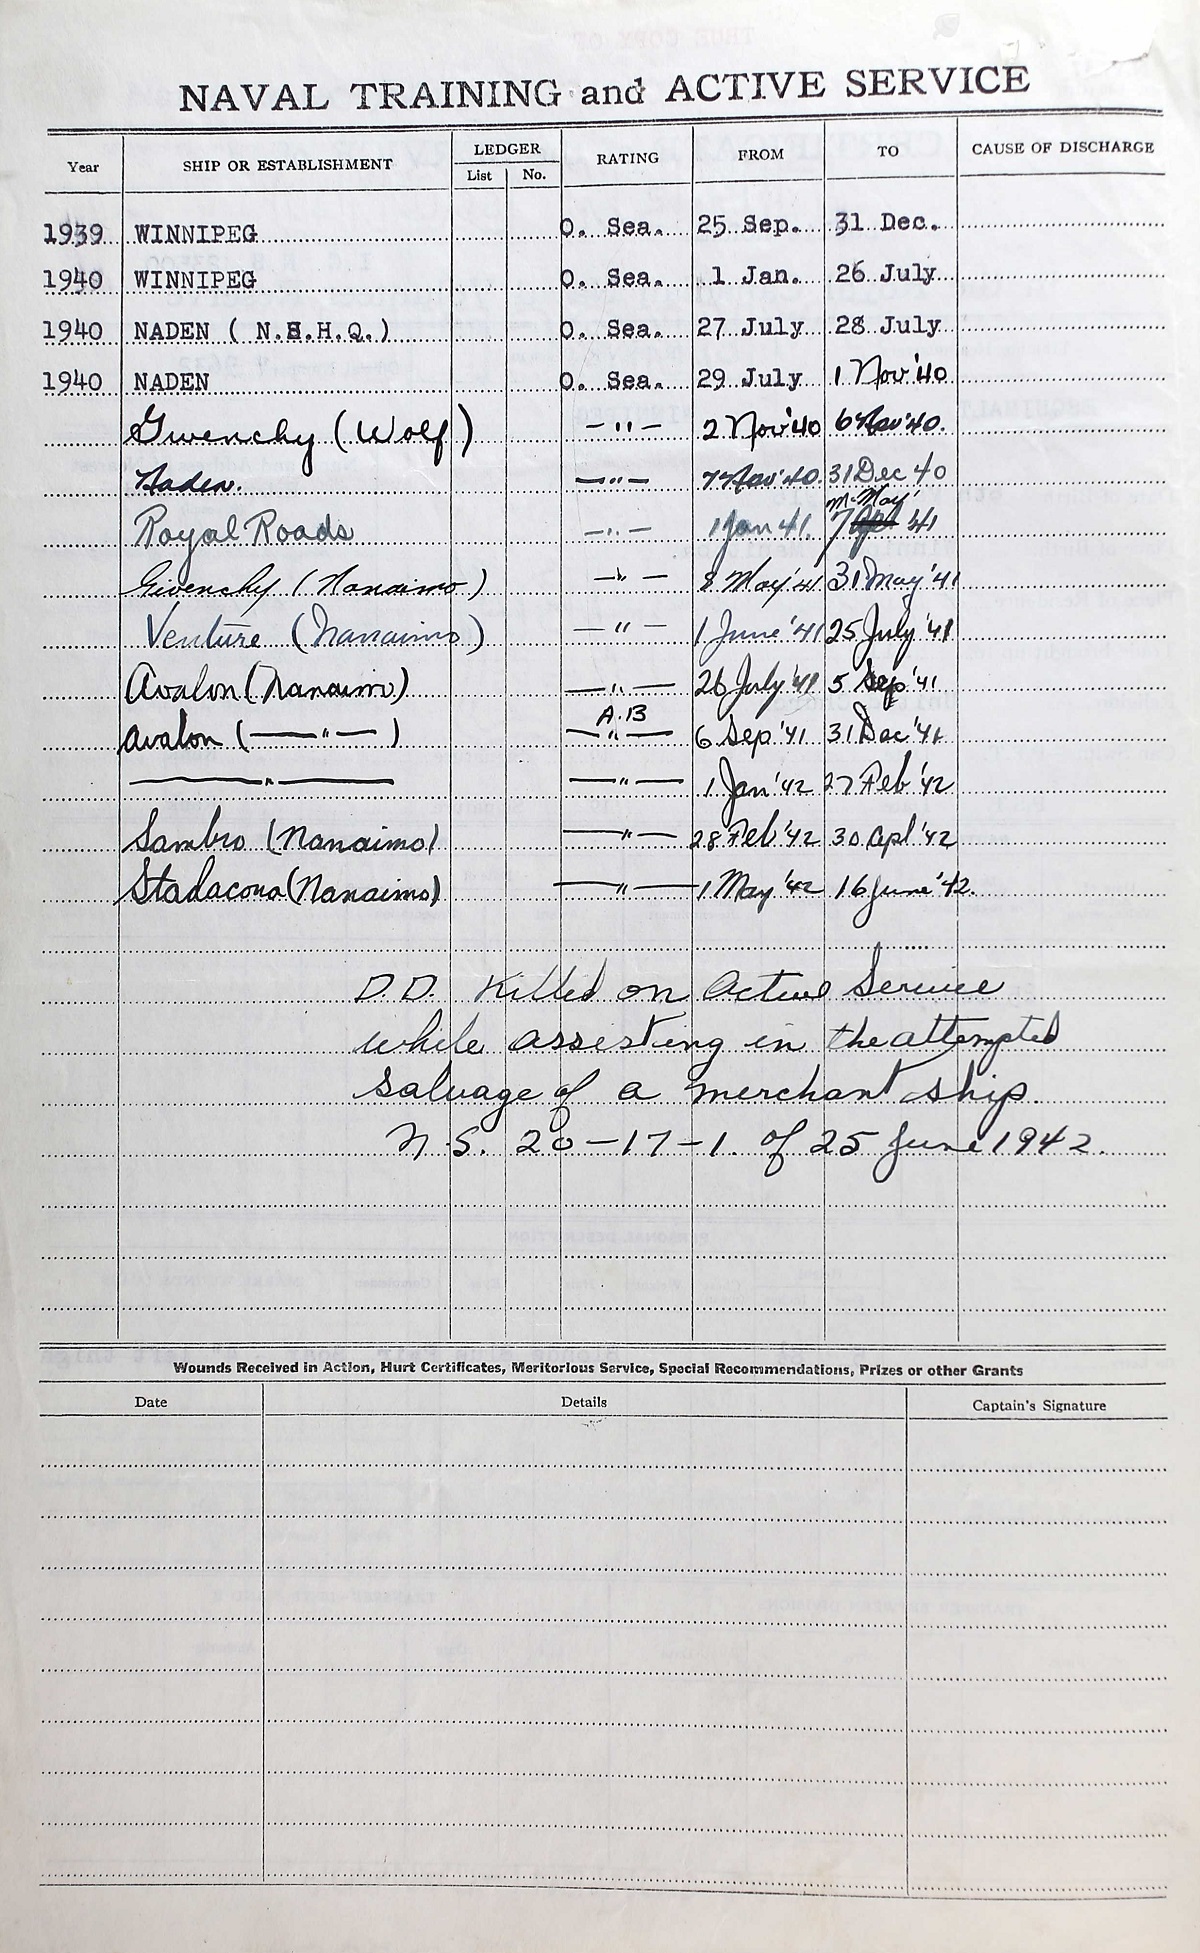 NAVAL TRAINING and ACTIVE SERVICE
Year SHIP OR ESTABLISHMENT LEDGER List No. RATING FROM TO CAUSE OF DISCHARGE
1939 WINNIPEG O. Sea. 25 Sep. 31 Dec.
1940 WINNIPEG O. Sea. 1 Jan. 26 July
1940 NADEN ( N.S.H.Q.) O. Sea. 27 July 28 July
1940 NADEN O. Sea. 29 July 1 Nov '40
Givenchy (Wolf) — " — 2 Nov '40 6 Nov '40.
Naden. — " — 7 Nov '40. 31 Dec 40
Royal Roads — " — 1 Jan 41. 7 May '41
Givenchy (Nanaimo) — " — 8 May '41 31 May '41
Venture (Nanaimo) — " — 1 June '41 25 July '41
Avalon (Nanaimo) — " — 26 July '41 5 Sep '41
Avalon ( — " — ) A.B — " — 6 Sep '41 31 Dec '41
— " — — " — 1 Jan '42 27 Feb '42
Sambro (Nanaimo) — " — 28 Feb '42 30 Apl '42
Stadacona (Nanaimo) — " — 1 May '42 16 June '42.
D.D. Killed on Active Service
while assisting in the attempted
salvage of a merchant ship.
N.S. 20-17-1. of 25 June 1942.
Wounds Received in Action, Hurt Certificates, Meritorious Service, Special Recommendations, Prizes or other Grants
Date Details Captain's Signature